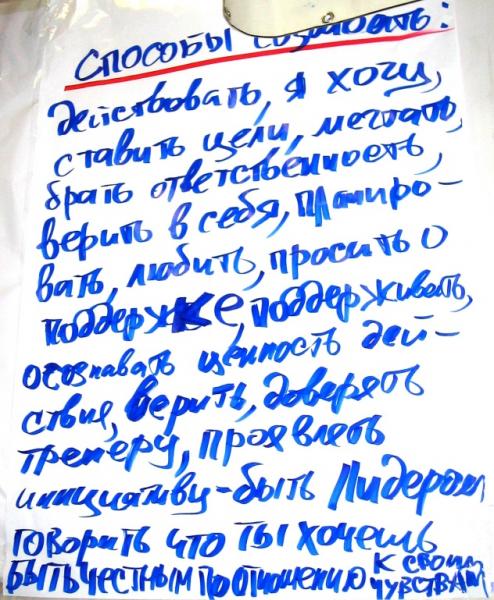 Способы создавать:
действовать, я хочу,
ставить цели, мечтать,
брать ответственность,
верить в себя, планиро-
вать, любить, просить о
поддержке, поддерживать,
осознавать ценность дей-
ствия, верить, доверять
тренеру, проявлять
инициативу-быть Лидером
говорить что ты хочешь
быть честным по отношению к своим
чувствам